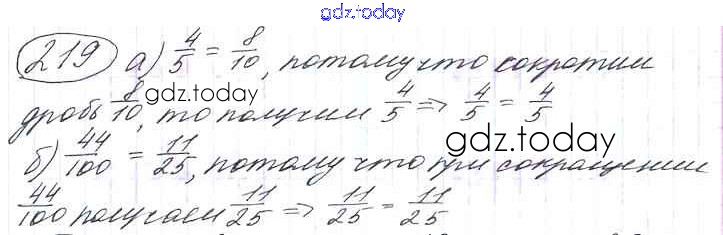 gdz.today
219 а) 4/5 = 8/10, потому что сократим
дробь 8/10, то получим 4/5 => 4/5 = 4/5
gdz.today
gdz.today
б) 44/100 = 11/25, потому что при сокращении
44/100 получаем 11/25 => 11/25 = 11/25